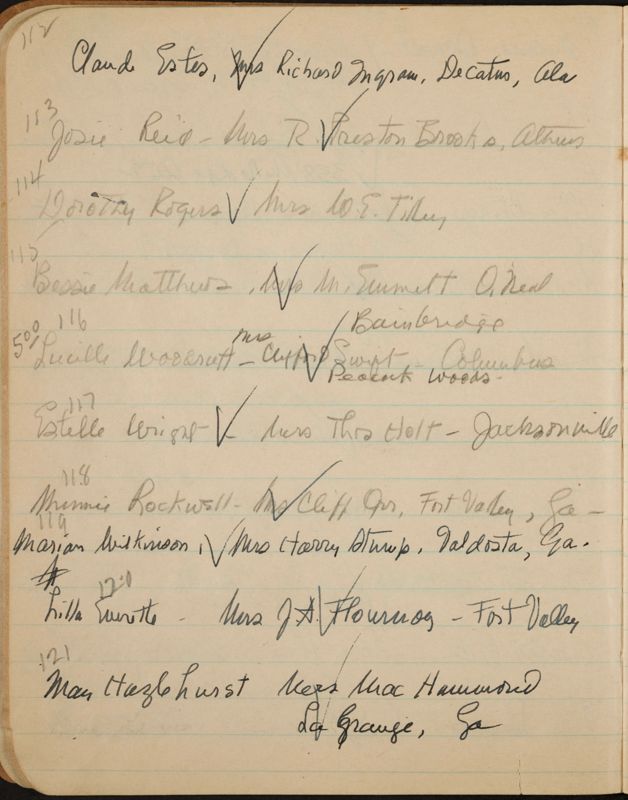 112
Claude Estes, Mrs Richard Ingram, Decatur, Ala
113
Josie Reid - Mrs R. Preston Brooks, Athens
114
Dorothy Rogers Mrs W. E. Tilley
115
Bessie Matthews, Mrs M. Emmett O'Neal
116 Bainbridge
500 Lucille Woodruff - Mrs Clifford Swift - Columbus
Peacock Woods.
117
Estelle Wright - Mrs Thos Holt - Jacksonville
118
Minnie Rockwell - Mrs Cliff Orr, Fort Valley, Ga -
119
Marian Wilkinson, Mrs Harry Stump, Valdosta, Ga.
120
Lilla Everette - Mrs J. A. Flournoy - Fort Valley
121
May Hazlehurst Mrs Mac Hammond
La Grange, Ga